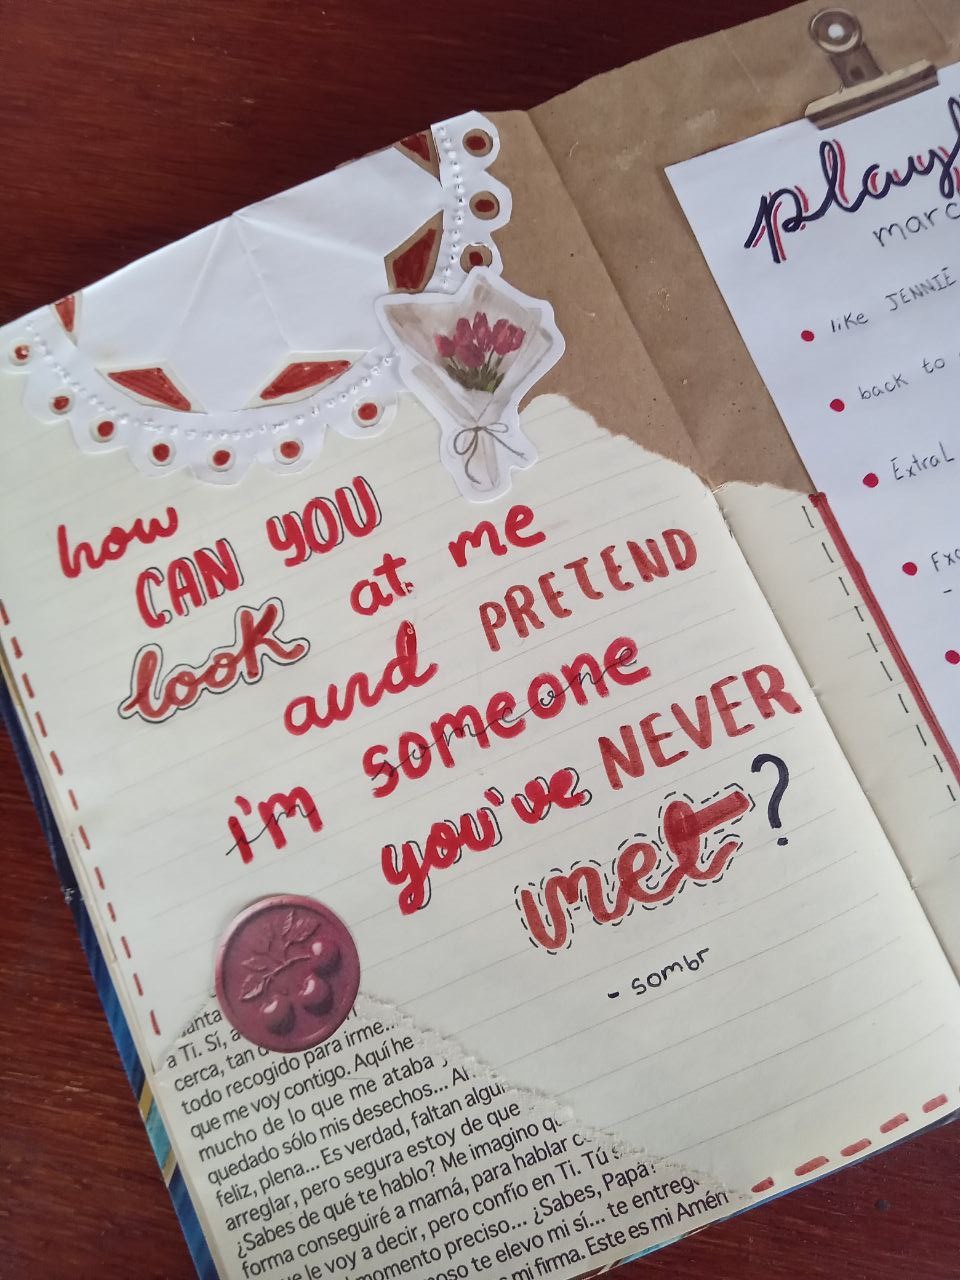 how
CAN YOU
look at me
and PRETEND
i'm someone
you've NEVER
met?
- sombr
a Ti. Sí,
cerca, tan
todo recogido para irme...
que me voy contigo. Aquí he
mucho de lo que me ataba y
quedado sólo mis desechos...
feliz, plena... Es verdad, faltan
arreglar, pero segura estoy de que
¿Sabes de qué te hablo? Me imagino
forma conseguiré a mamá, para hablar
le voy a decir, pero confío en Ti. Tú
momento preciso... ¿Sabes, Papá?
te elevo mi sí... te
mi firma. Este es mi Amén
like JENNIE
back to
ExtraL